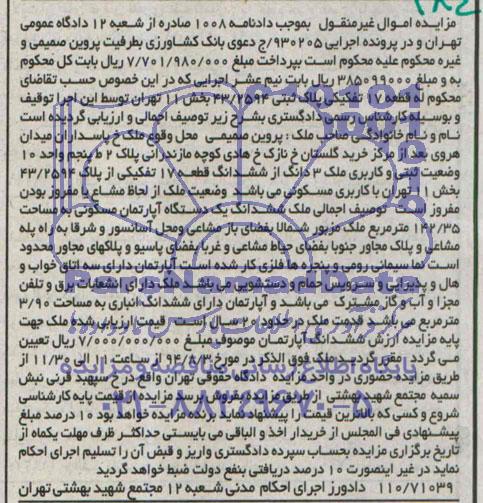 ۲۸۲
مزایده اموال غیرمنقول بموجب دادنامه ۱۰۰۸ صادره از شعبه ۱۲ دادگاه عمومی
تهران و در پرونده اجرایی ۹۳۰۲۰۵/ج دعوی بانک کشاورزی بطرفیت پروین صمیمی و
غیره محکوم علیه محکوم است بپرداخت مبلغ ۷/۷۰۱/۹۸۰/۰۰۰ ریال بابت کل محکوم
به و مبلغ ۳۸۵۰۹۹۰۰۰ ریال بابت نیم عشر اجرایی که در این خصوص حسب تقاضای
محکوم له قطعه ۱۷ تفکیکی پلاک ثبتی ۴۳/۲۵۹۴ بخش ۱۱ تهران توسط این اجرا توقیف
و بوسیله کارشناس رسمی دادگستری بشرح زیر توصیف اجمالی و ارزیابی گردیده است
نام و نام خانوادگی صاحب ملک : پروین صمیمی محل وقوع ملک خ پاسداران میدان
هروی بعد از مرکز خرید گلستان خ نازک خ هادی کوچه مازندرانی پلاک ۲ ط پنجم واحد ۱۰
وضعیت ثبتی و کاربری ملک ۳ دانگ از ششدانگ قطعه ۱۷ تفکیکی از پلاک ۴۳/۲۵۹۴
بخش ۱۱ تهران با کاربری مسکونی می باشد وضعیت ملک از لحاظ مشاع یا مفروز بودن
مفروز است توصیف اجمالی ملک ششدانگ یک دستگاه آپارتمان مسکونی به مساحت
۱۴۲/۳۵ مترمربع ملک مزبور شمالا بفضای باز مشاعی ومحل آسانسور و شرقا به راه پله
مشاعی و پلاک مجاور جنوبا بفضای حیاط مشاعی و غربا بفضای پاسیو و پلاکهای مجاور محدود
است نما سیمانی رومی و پنجره ها فلزی کار شده است آپارتمان دارای سه اتاق خواب و
هال و پذیرایی و سرویس حمام و دستشویی می باشد ملک دارای انشعابات برق و تلفن
مجزا و آب و گاز مشترک می باشد و آپارتمان دارای ششدانگ انباری به مساحت ۳/۹۰
مترمربع می باشد قدمت ملک در حدود ۲۰ سال است قیمت ارزیابی شده ملک جهت
پایه مزایده ارزش ششدانگ آپارتمان موصوف مبلغ ۷/۰۰۰/۰۰۰/۰۰۰ ریال تعیین
می گردد مقرر گردید ملک فوق الذکر در مورخ ۹۴/۸/۳ از ساعت ۱۱ الی ۱۱/۳۰ از
طریق مزایده حضوری در واحد مزایده دادگاه حقوقی تهران واقع در خ سپهبد قرنی نبش
سمیه مجتمع شهید بهشتی از طریق مزایده بفروش برسد مزایده از قیمت پایه کارشناسی
شروع و کسی که بالاترین قیمت را پیشنهاد نماید برنده مزایده خواهد بود ۱۰ درصد مبلغ
پیشنهادی فی المجلس از خریدار اخذ و الباقی می بایستی حداکثر ظرف مهلت یکماه از
تاریخ برگزاری مزایده بحساب سپرده دادگستری واریز و قبض آن را تسلیم اجرای احکام
نماید در غیر اینصورت ۱۰ درصد دریافتی بنفع دولت ضبط خواهد گردید
۱۱۰/۷۱۰۳۹ دادورز اجرای احکام مدنی شعبه ۱۲ مجتمع شهید بهشتی تهران
پایگاه اطلاع رسانی مناقصه و مزایده